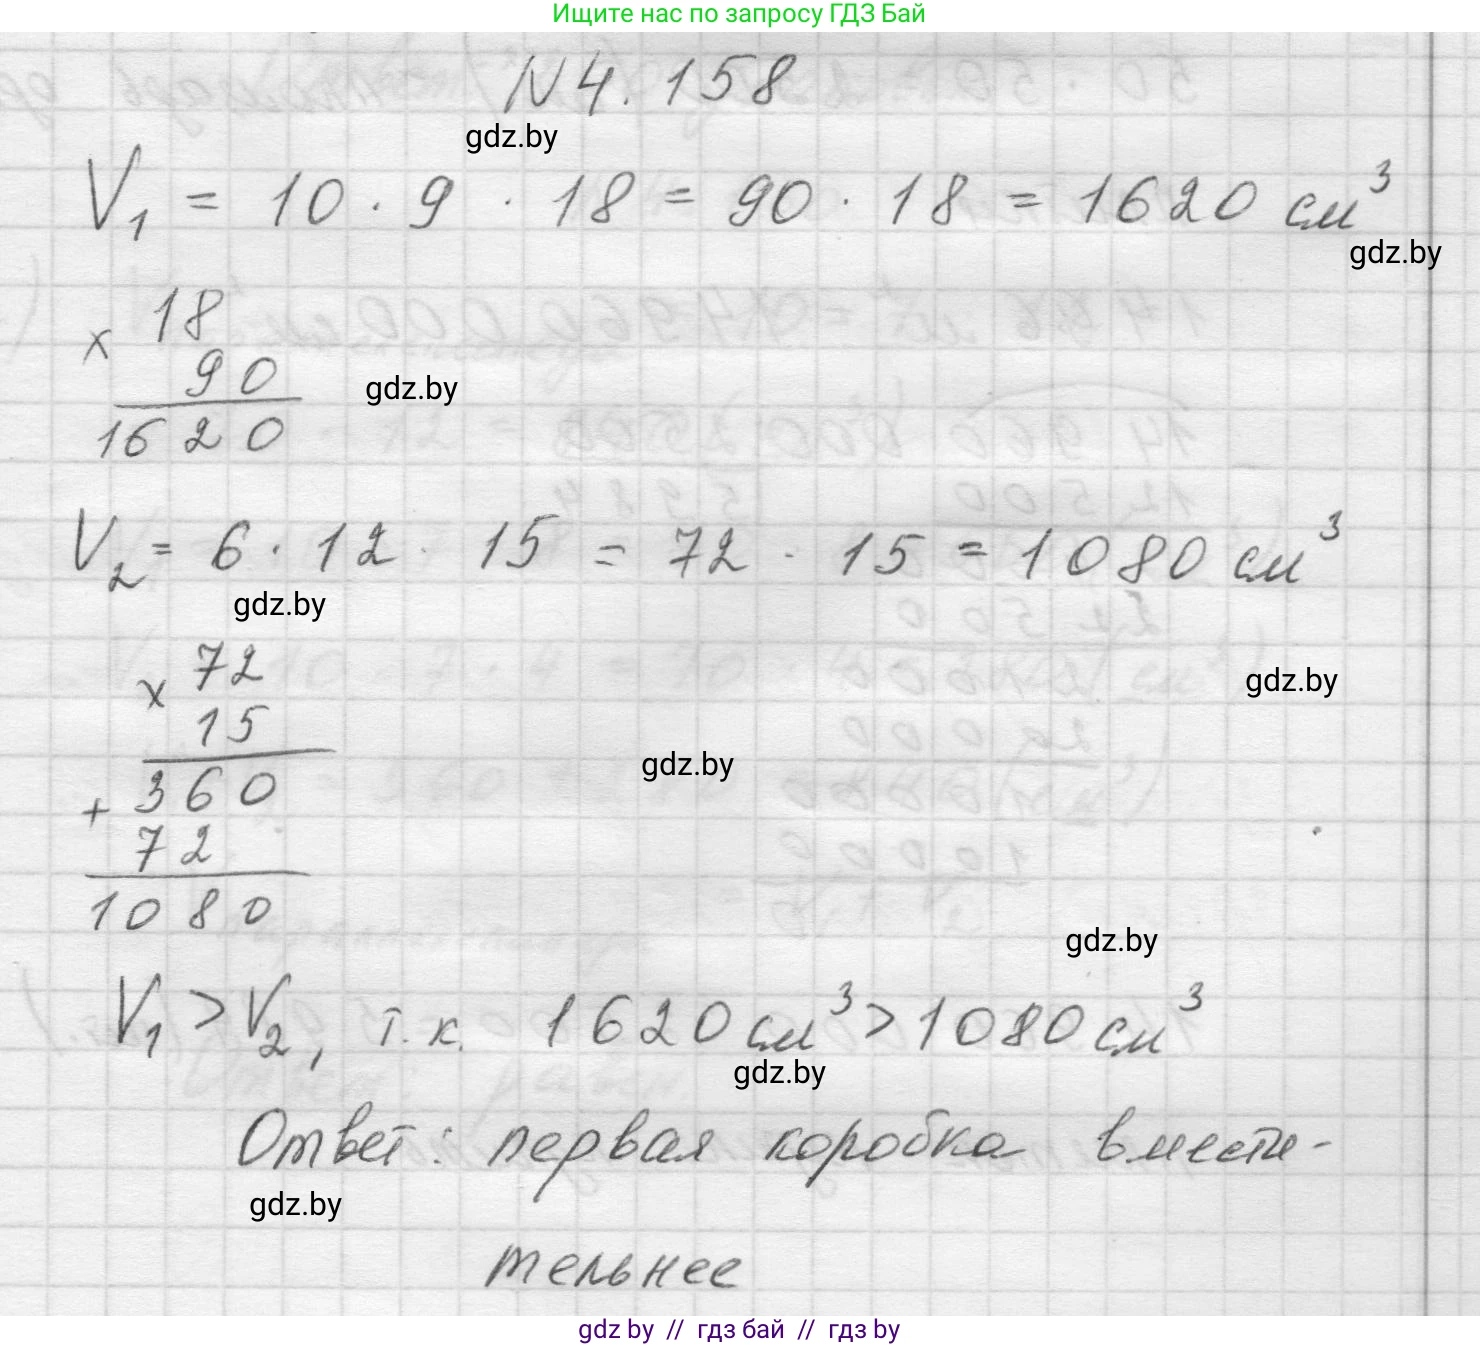 Ищите нас по запросу ГДЗ Бай
N4.158
gdz.by
V₁ = 10 · 9 · 18 = 90 · 18 = 1620 см³
gdz.by
× 18
90
gdz.by
1620
V₂ = 6 · 12 · 15 = 72 · 15 = 1080 см³
gdz.by
× 72
gdz.by
15
gdz.by
+ 360
72
1080
gdz.by
V₁ > V₂, т.к. 1620 см³ > 1080 см³
gdz.by
Ответ: первая коробка вмести-
gdz.by
тельнее
gdz by // гдз бай // гдз by